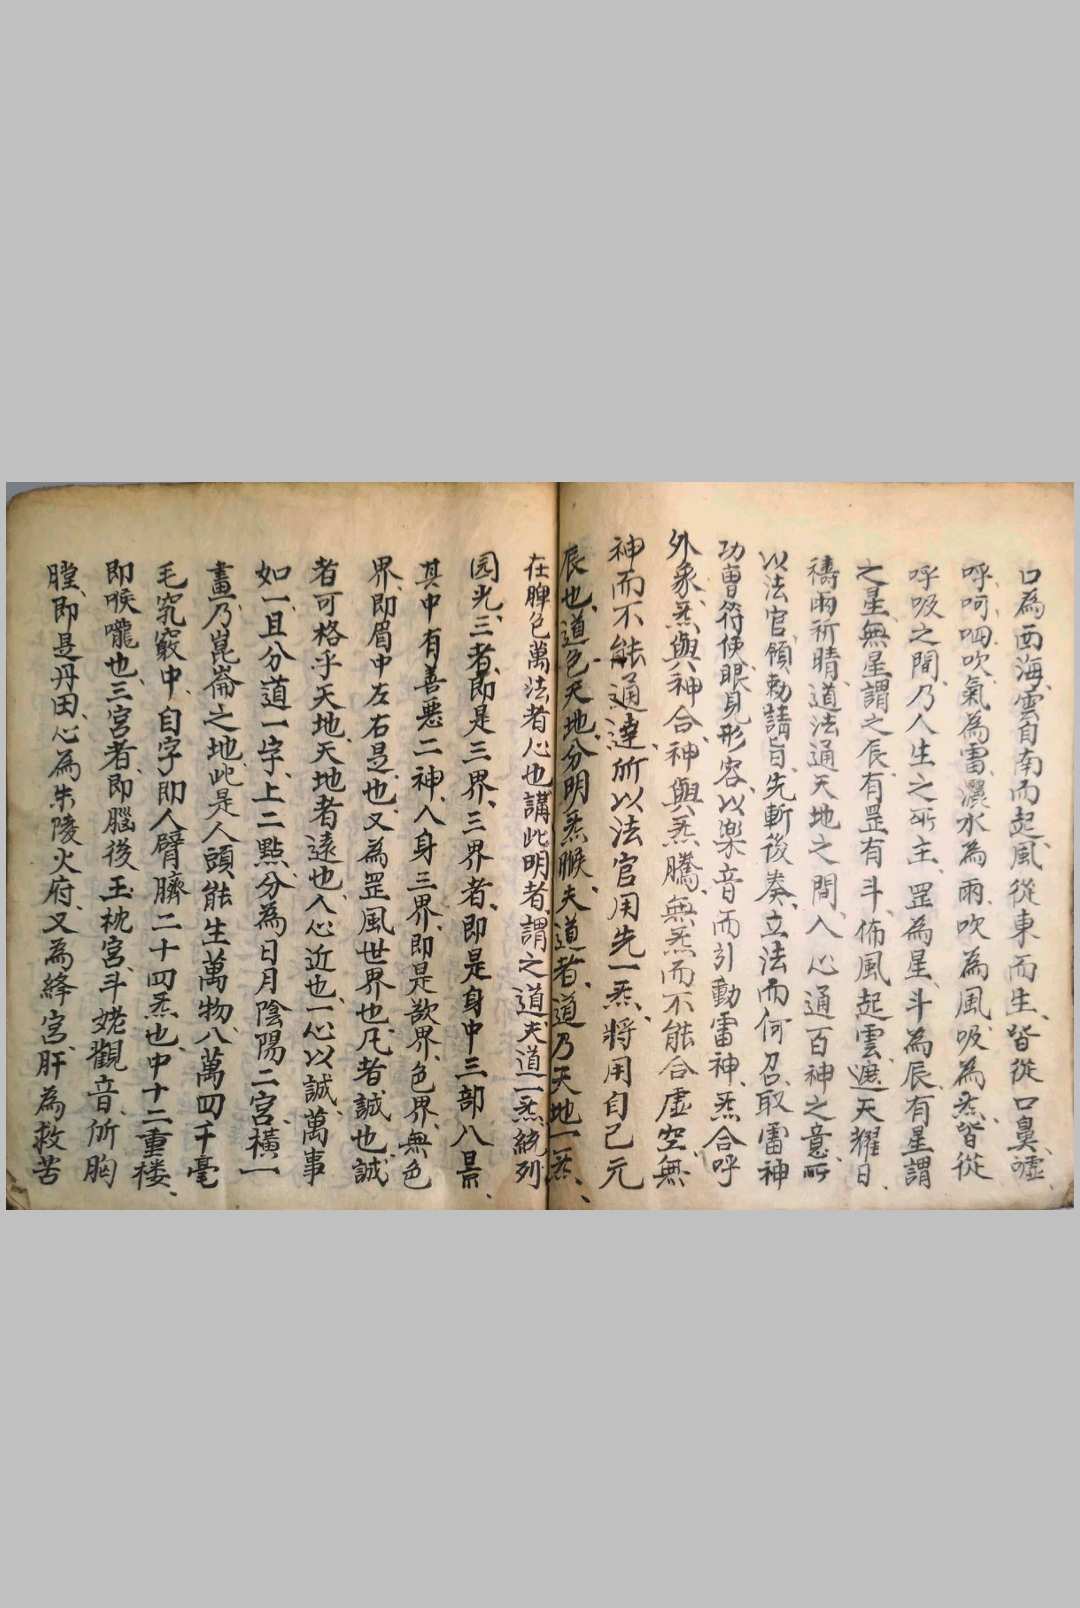 口為西海、雲自南而起、風從東而生、皆從口鼻噓
呼、呵呬吹、氣為雷、灑水為雨、吹為風、吸為炁、皆從
呼吸之間、乃人生之所主、罡為星、斗為辰、有星謂
之星、無星謂之辰、有罡有斗、佈風起雲、遮天耀日、
禱雨祈晴、道法通天地之間、人心通百神之意、所
以法官領勅請旨、先斬後奏、立法而何召、取雷神
功曹符使、眼見形容、以樂音而引動雷神、炁合呼
外象、炁與神合、神與炁騰、無炁而不能合虛空、無
神而不能通達、所以法官用先一炁、將用自己元
辰也、道色天地、分明炁賬、夫道者、道乃天地一炁、
在脾色萬法者、心也、講此明者、謂之道、夫道二炁統列
园光、三者、即是三界、三界者、即是身中三部八景、
其中有善惡二神、人身三界、即是欲界、色界、無色
界、即眉中左右是也、又為罡風世界也、凡者誠也、誠
者可格乎天地、天地者遠也、人心近也、一心以誠、萬事
如一、且分道一字、上二點、分為日月陰陽二宮、橫一
畫、乃崑崙之地、此是人頭、能生萬物、八萬四千毫
毛窍竅中、自字即人臂臍二十四炁也、中十二重楼、
即喉嚨也、三宮者、即腦後玉枕宮、斗姥觀音、所胸
膛、即是丹田、心為朱陵火府、又為絳宮、肝為救苦